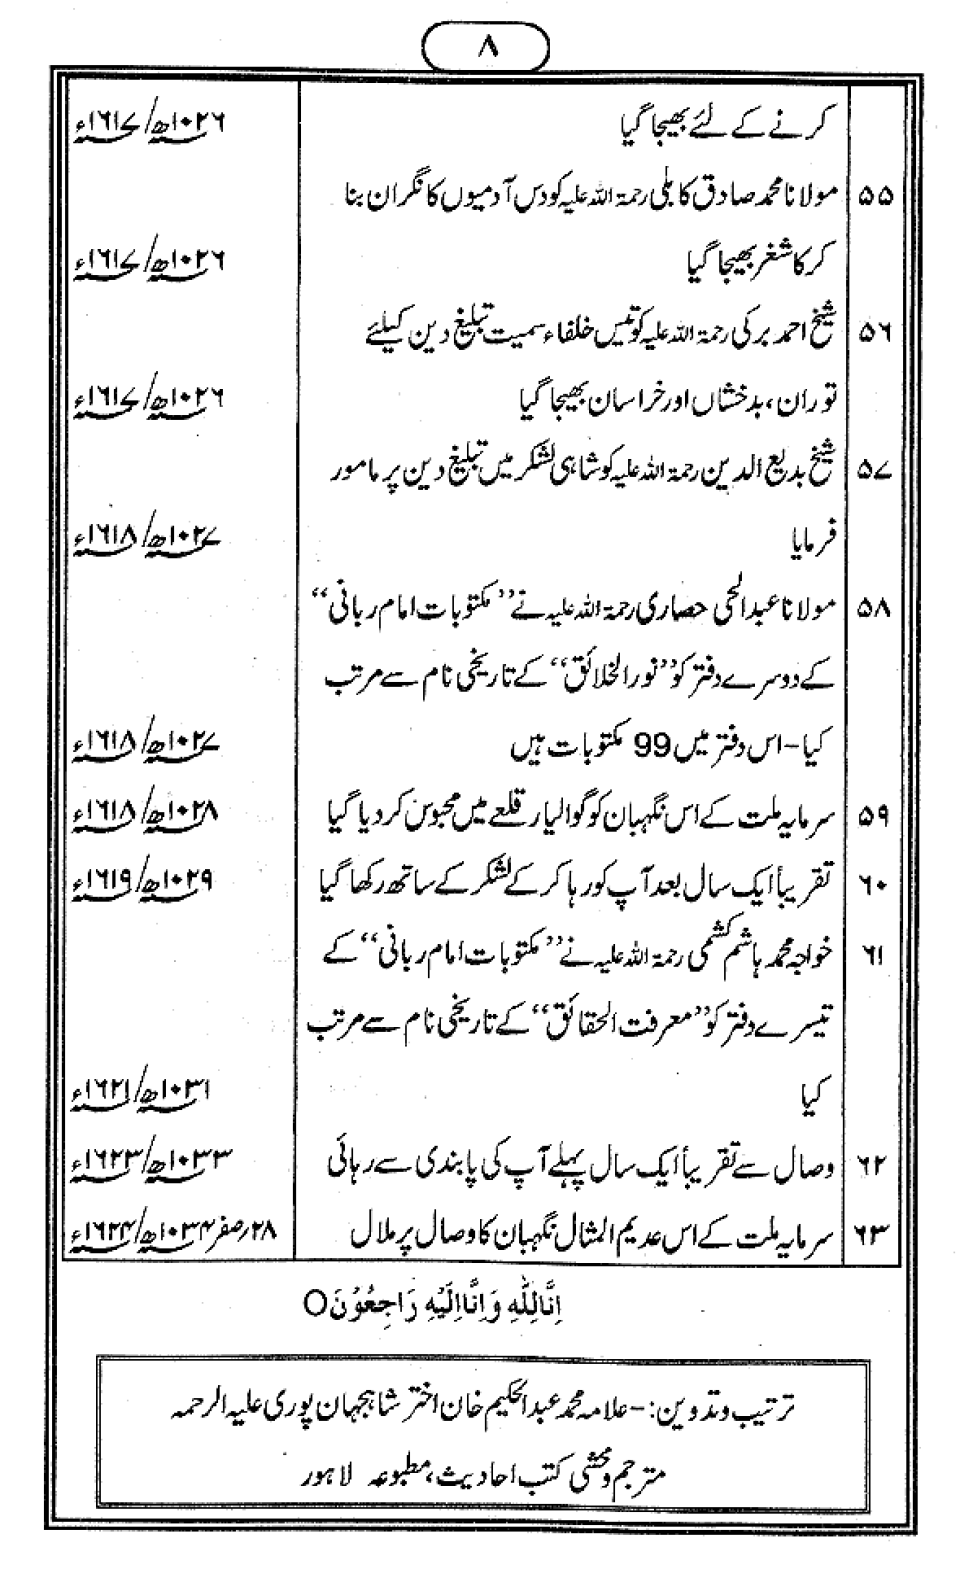 ۸
کرنے کے لئے بھیجا گیا ۱۰۲۶ھ/۱۶۱۷ء
۵۵ مولانا محمد صادق کابلی رحمۃ اللہ علیہ کو دس آدمیوں کا نگران بنا
کر کاشغر بھیجا گیا ۱۰۲۶ھ/۱۶۱۷ء
۵۶ شیخ احمد برکی رحمۃ اللہ علیہ کو تیس خلفاء سمیت تبلیغ دین کیلئے
توران، بدخشاں اور خراسان بھیجا گیا ۱۰۲۶ھ/۱۶۱۷ء
۵۷ شیخ بدیع الدین رحمۃ اللہ علیہ کو شاہی لشکر میں تبلیغ دین پر مامور
فرمایا ۱۰۲۷ھ/۱۶۱۸ء
۵۸ مولانا عبدالحی حصاری رحمۃ اللہ علیہ نے ’’مکتوبات امام ربانی‘‘
کے دوسرے دفتر کو ’’نور الخلائق‘‘ کے تاریخی نام سے مرتب
کیا۔ اس دفتر میں 99 مکتوبات ہیں ۱۰۲۷ھ/۱۶۱۸ء
۵۹ سرمایہ ملت کے اس نگہبان کو گوالیار قلعے میں محبوس کر دیا گیا ۱۰۲۸ھ/۱۶۱۸ء
۶۰ تقریباً ایک سال بعد آپ کو رہا کر کے لشکر کے ساتھ رکھا گیا ۱۰۲۹ھ/۱۶۱۹ء
۶۱ خواجہ محمد ہاشم کشمی رحمۃ اللہ علیہ نے ’’مکتوبات امام ربانی‘‘ کے
تیسرے دفتر کو ’’معرفت الحقائق‘‘ کے تاریخی نام سے مرتب
کیا ۱۰۳۱ھ/۱۶۲۱ء
۶۲ وصال سے تقریباً ایک سال پہلے آپ کی پابندی سے رہائی ۱۰۳۳ھ/۱۶۲۳ء
۶۳ سرمایہ ملت کے اس عدیم المثال نگہبان کا وصال پر ملال ۲۸؍صفر ۱۰۳۴ھ/۱۶۲۴ء
اِنَّا لِلّٰهِ وَاِنَّا اِلَیْهِ رَاجِعُوْنَ O
ترتیب و تدوین:- علامہ محمد عبدالحکیم خان اختر شاہجہان پوری علیہ الرحمہ
مترجم و محشی کتب احادیث، مطبوعہ لاہور